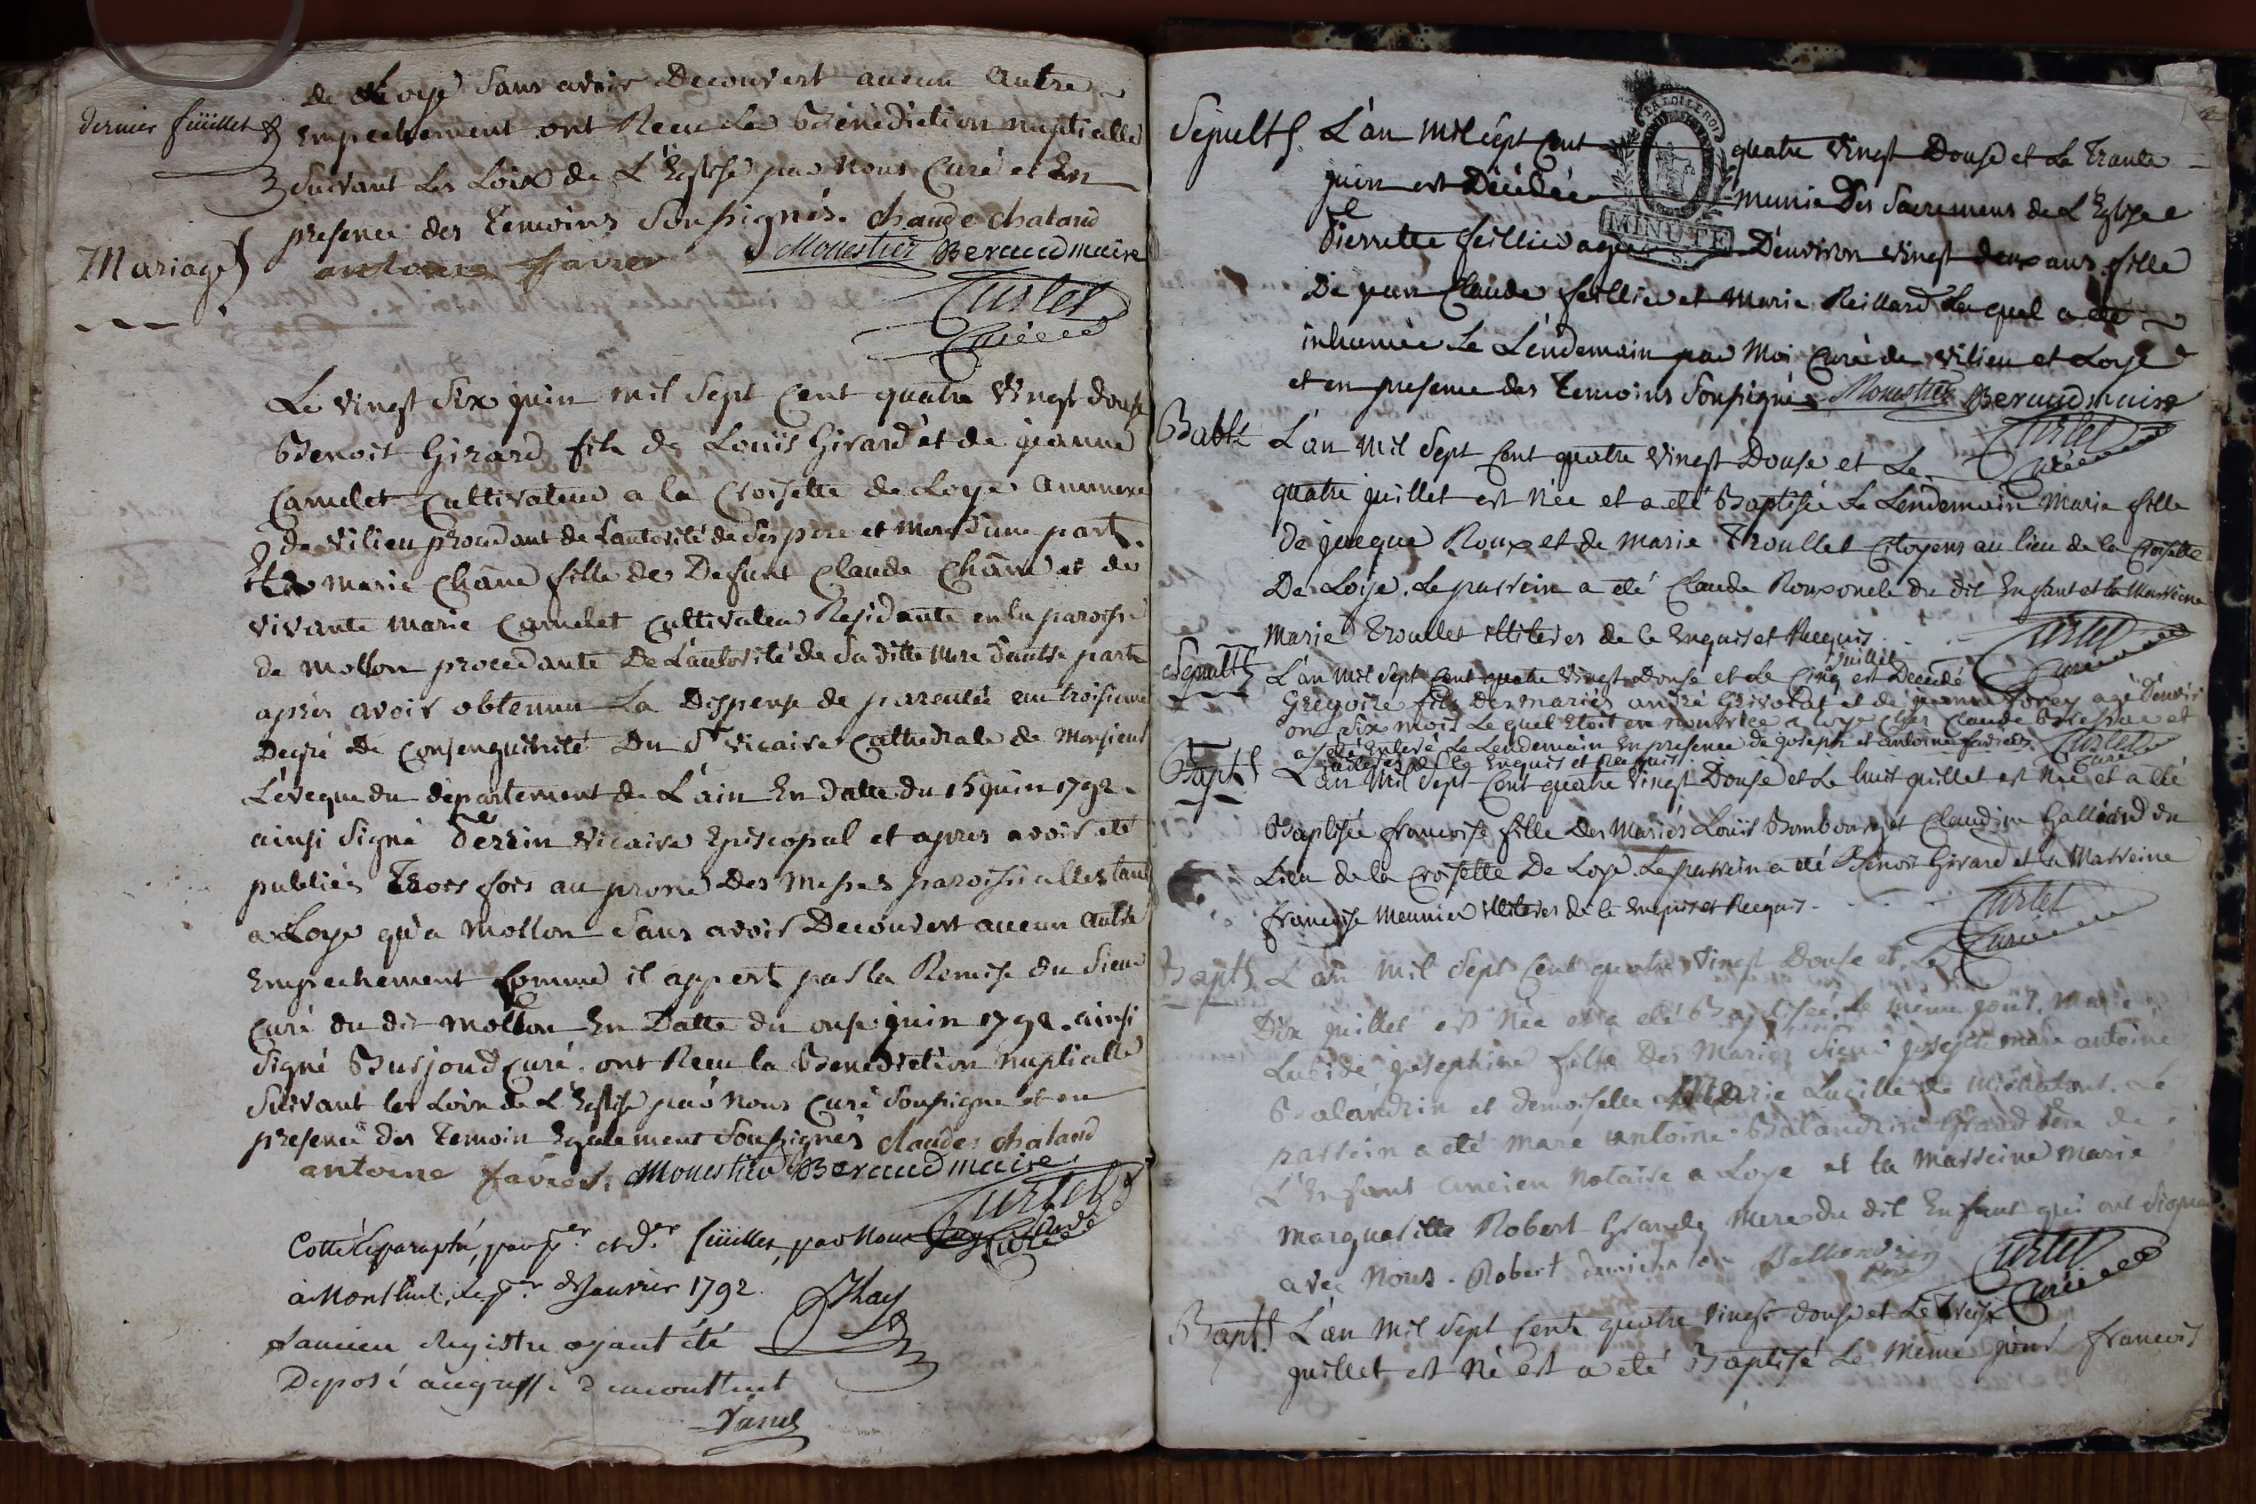 dernier feüillet
de Loye Sans avoir Decouvert aucun Autre
Empechement ont Recu La Bénédiction nuptialle
Suivant Les Loix de L'Eglise par Nous Curé et En
presence des Temoins Soussignés. claude chaland
antoine favier Monestier Beraud maire
Curtet
Curé
Mariage
Le vingt Six juin mil Sept Cent quatre Vingt douse
Benoit Girard fils de Louïs Girard et de jeanne
Camelet Cultivateur a la Croisette de Loye Annexe
de vilieu procedant de L'autorité de Ses pere et Mere d'une part
Et marie Châne fille de Defunt Claude Châne et de
vivante marie Camelet Cultivateur Residante en la paroisse
de mollon procedante De L'autorité de Sa ditte Mere d'autre parte
après avoir obtenu La Dispense de parentée au troisieme
Degré De Consenguinité Du Sr vicaire Cathedrale de Monsieur
L'éveque du département de L'ain En datte du 15 juin 1792.
ainsi Signé vicaire Episcopal et apres avoir été
publiés Trois fois au prone des Messes paroissialles tant
a Loye qu'a Mollon Sans avoir Decouvert aucun Autre
Empechement Comme il appert par la Remise du Sieur
Curé du dit Mollon En Datte du onse juin 1792. ainsi
Signé Burjoud Curé. ont Recu la Benediction Nuptialle
Suivant les Loix de L'Eglise par Nous Curé Soussigne et en
presence des Temoin Egalement Soussignés claude chaland
antoine favier. Monestier Beraud maire
Curtet
Curé
Cotté & paraphé, par per. et der. feüillet, par Nous
à Montluel, le per. Janvier 1792.
L'ancien Registre ayant été
Deposé au greffe de montluel
Sepultе. L'an Mil Sept Cent quatre Vingt Douse et Le Trante
juin est Décédée munie Des Sacremens de L'Eglise
Pierrette feillie agée D'environ vingt deux ans fille
De jean Claude feillie et Marie Reillard Lequel a été
inhumée Le Lendemain par Moi Curé de vilieu et Loye
et en presence des Temoins Soussignés Monestier Beraud maire
LA LOI LE ROI
MINUTE
Curtet
Curé
Bapt L'an Mil Sept Cent quatre Vingt Douse et Le
quatre juillet est Née et a eté Baptisée Le Lendemain Marie fille
de jacque Roux et de Marie Troullet Citoyens au lieu de la Croisette
De Loïse. Le parrein a eté Claude Roux oncle du dit Enfant et la Marreine
Marie Troullet illiteres de ce Enquis et Recquis
Curtet
Curé
Sepult L'an Mil Sept Cent quatre Vingt Douse et Le Cinq juillet est Decedé
Gregoire fils Des mariés andré Grivolat et de jeanne agé d'envir
on Six mois Lequel Etoit en nourrice a Loye Chez Claude et
a été Enteré Le Lendemain En presence de joseph et antoine favier
illiteres de ce Enquis et Recquis
Curtet
Curé
Bapt L'an Mil Sept Cent quatre Vingt Douse et Le huit juillet est Née et a été
Baptisée francoise fille Des Mariés Louïs Bombourg et Claudine Galliard du
Lieu de la Croisette De Loye Le parrein a été Benoit Girard et la Marreine
francoise Meunier illiteres de ce Enquis et Recquis.
Curtet
Curé
Bapt L'an Mil Sept Cent quatre Vingt Douse et Le
Dix juillet est Née et a eté Baptisée, Le même jour. Marie
Lucide josephine fille Des Mariés Sieur joseph mare antoine
Balandrin et demoiselle Marie Lucille de Michalont. Le
parrein a eté Mare antoine Balandrin Grand Pere de
L'Enfant ancien Notaire a Loye et la Marreine Marie
Marguerite Robert Grande Mere du dit Enfant qui ont Signés
avec Nous. Robert Ballandrin
Curtet
Curé
Bapt L'an Mil Sept Cent quatre Vingt Douse et Le Treise
juillet est Né et a eté Baptisé Le Même jour francois